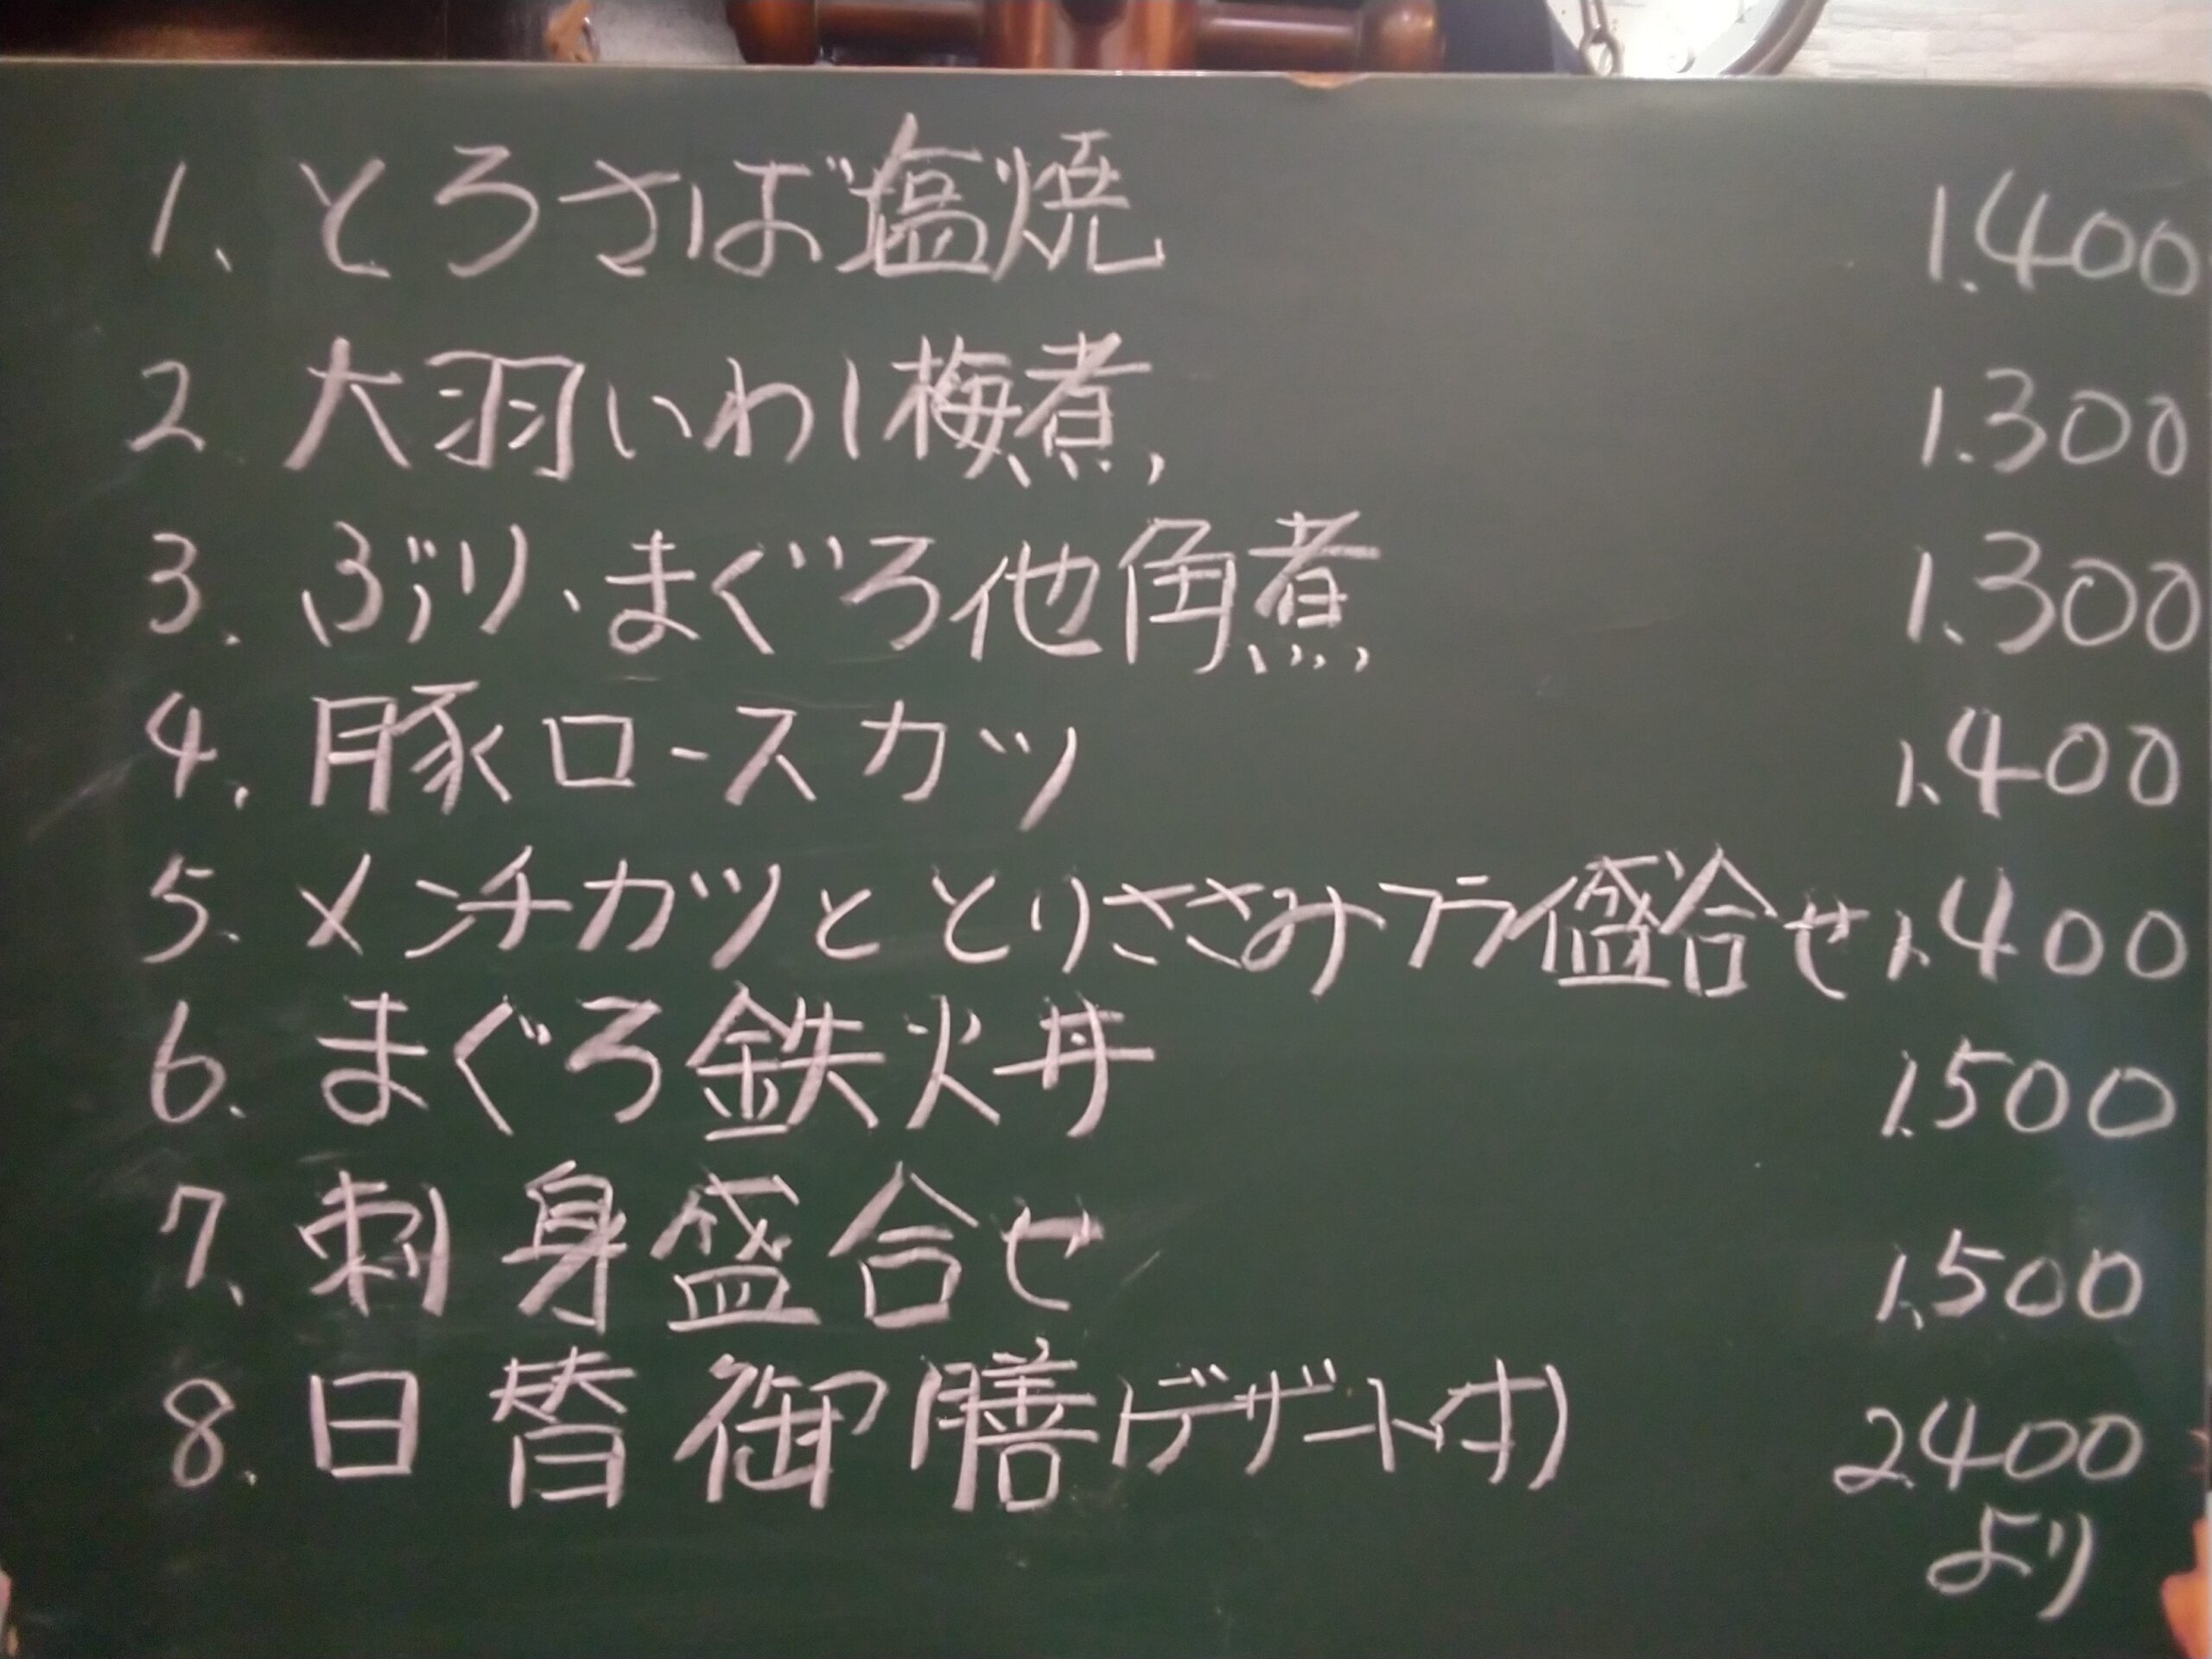 1、とろさば塩焼 1.400
2. 大羽いわし梅煮 1.300
3. ぶり、まぐろ他角煮 1.300
4. 豚ロースカツ 1.400
5. メンチカツととりささみフライ盛合せ 1.400
6. まぐろ鉄火丼 1.500
7、刺身盛合せ 1.500
8. 日替御膳(デザート付) 2.400
より